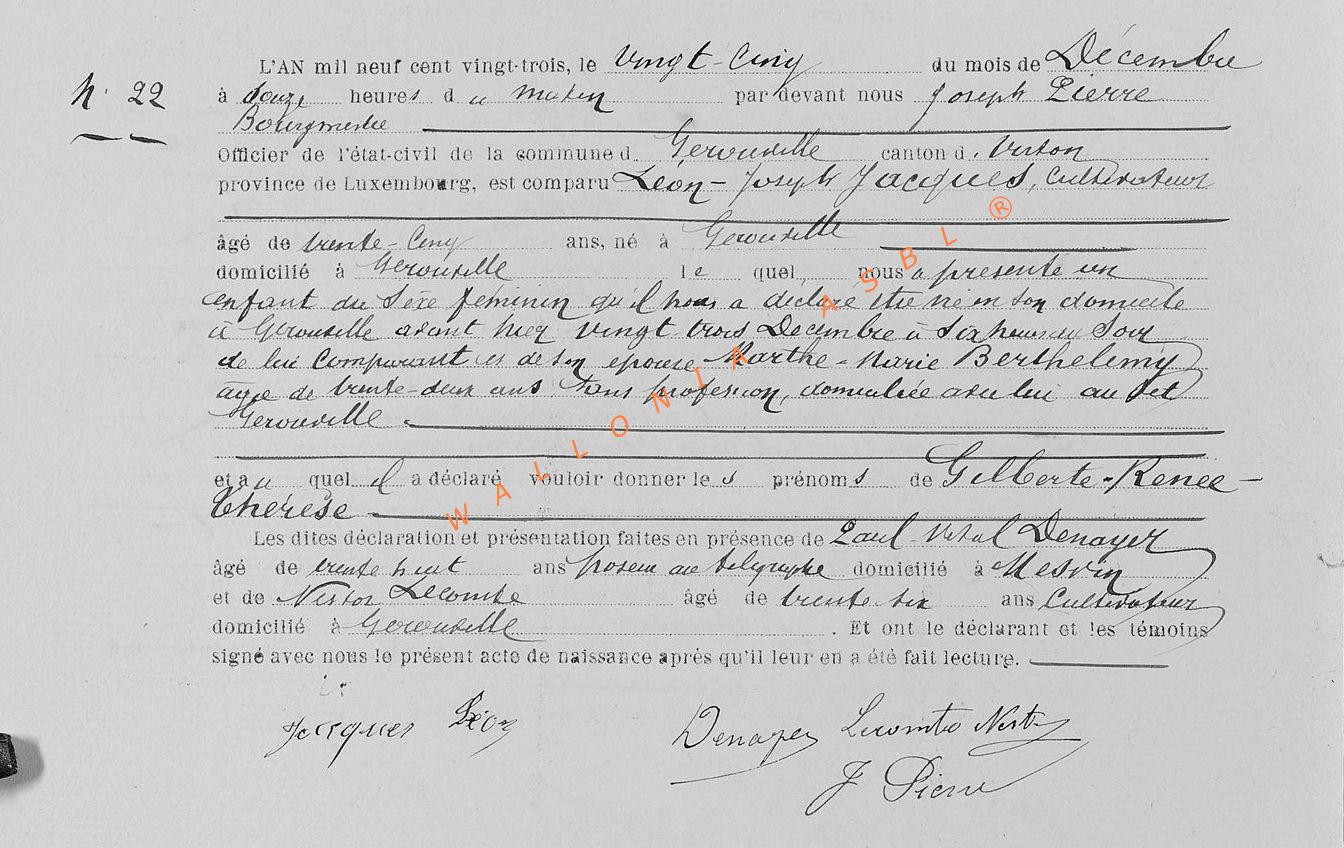 n° 22
L'AN mil neuf cent vingt-trois, le vingt-cinq du mois de Décembre
à douze heures du matin par devant nous Joseph Pierre
Bourgmestre
Officier de l'état-civil de la commune d. Gerouville canton d. Virton
province de Luxembourg, est comparu Léon-Joseph Jacques, Cultivateur
âgé de trente-Cinq ans, né à Gerouville
domicilié à Gerouville le quel nous a présenté un
enfant du sexe féminin qu'il nous a déclaré être né en son domicile
à Gerouville avant hier vingt trois Décembre à six heures du Soir
de lui Comparant et de son épouse Marthe-Marie Berthelemy
agée de trente-deux ans, sans profession, domiciliée avec lui au dit
Gerouville
et au quel il a déclaré vouloir donner les prénoms de Gilberte-Renée-
Thérèse
Les dites déclaration et présentation faites en présence de Paul Vital Denayer
âgé de trente huit ans poseur au télégraphe domicilié à Mesvin
et de Nestor Lecomte âgé de trente six ans Cultivateur
domicilié à Gerouville. Et ont le déclarant et les témoins
signé avec nous le présent acte de naissance après qu'il leur en a été fait lecture.
Jacques Léon
Denayer Lecomte Nestor
J Pierre
WALLONIA ASBL ®